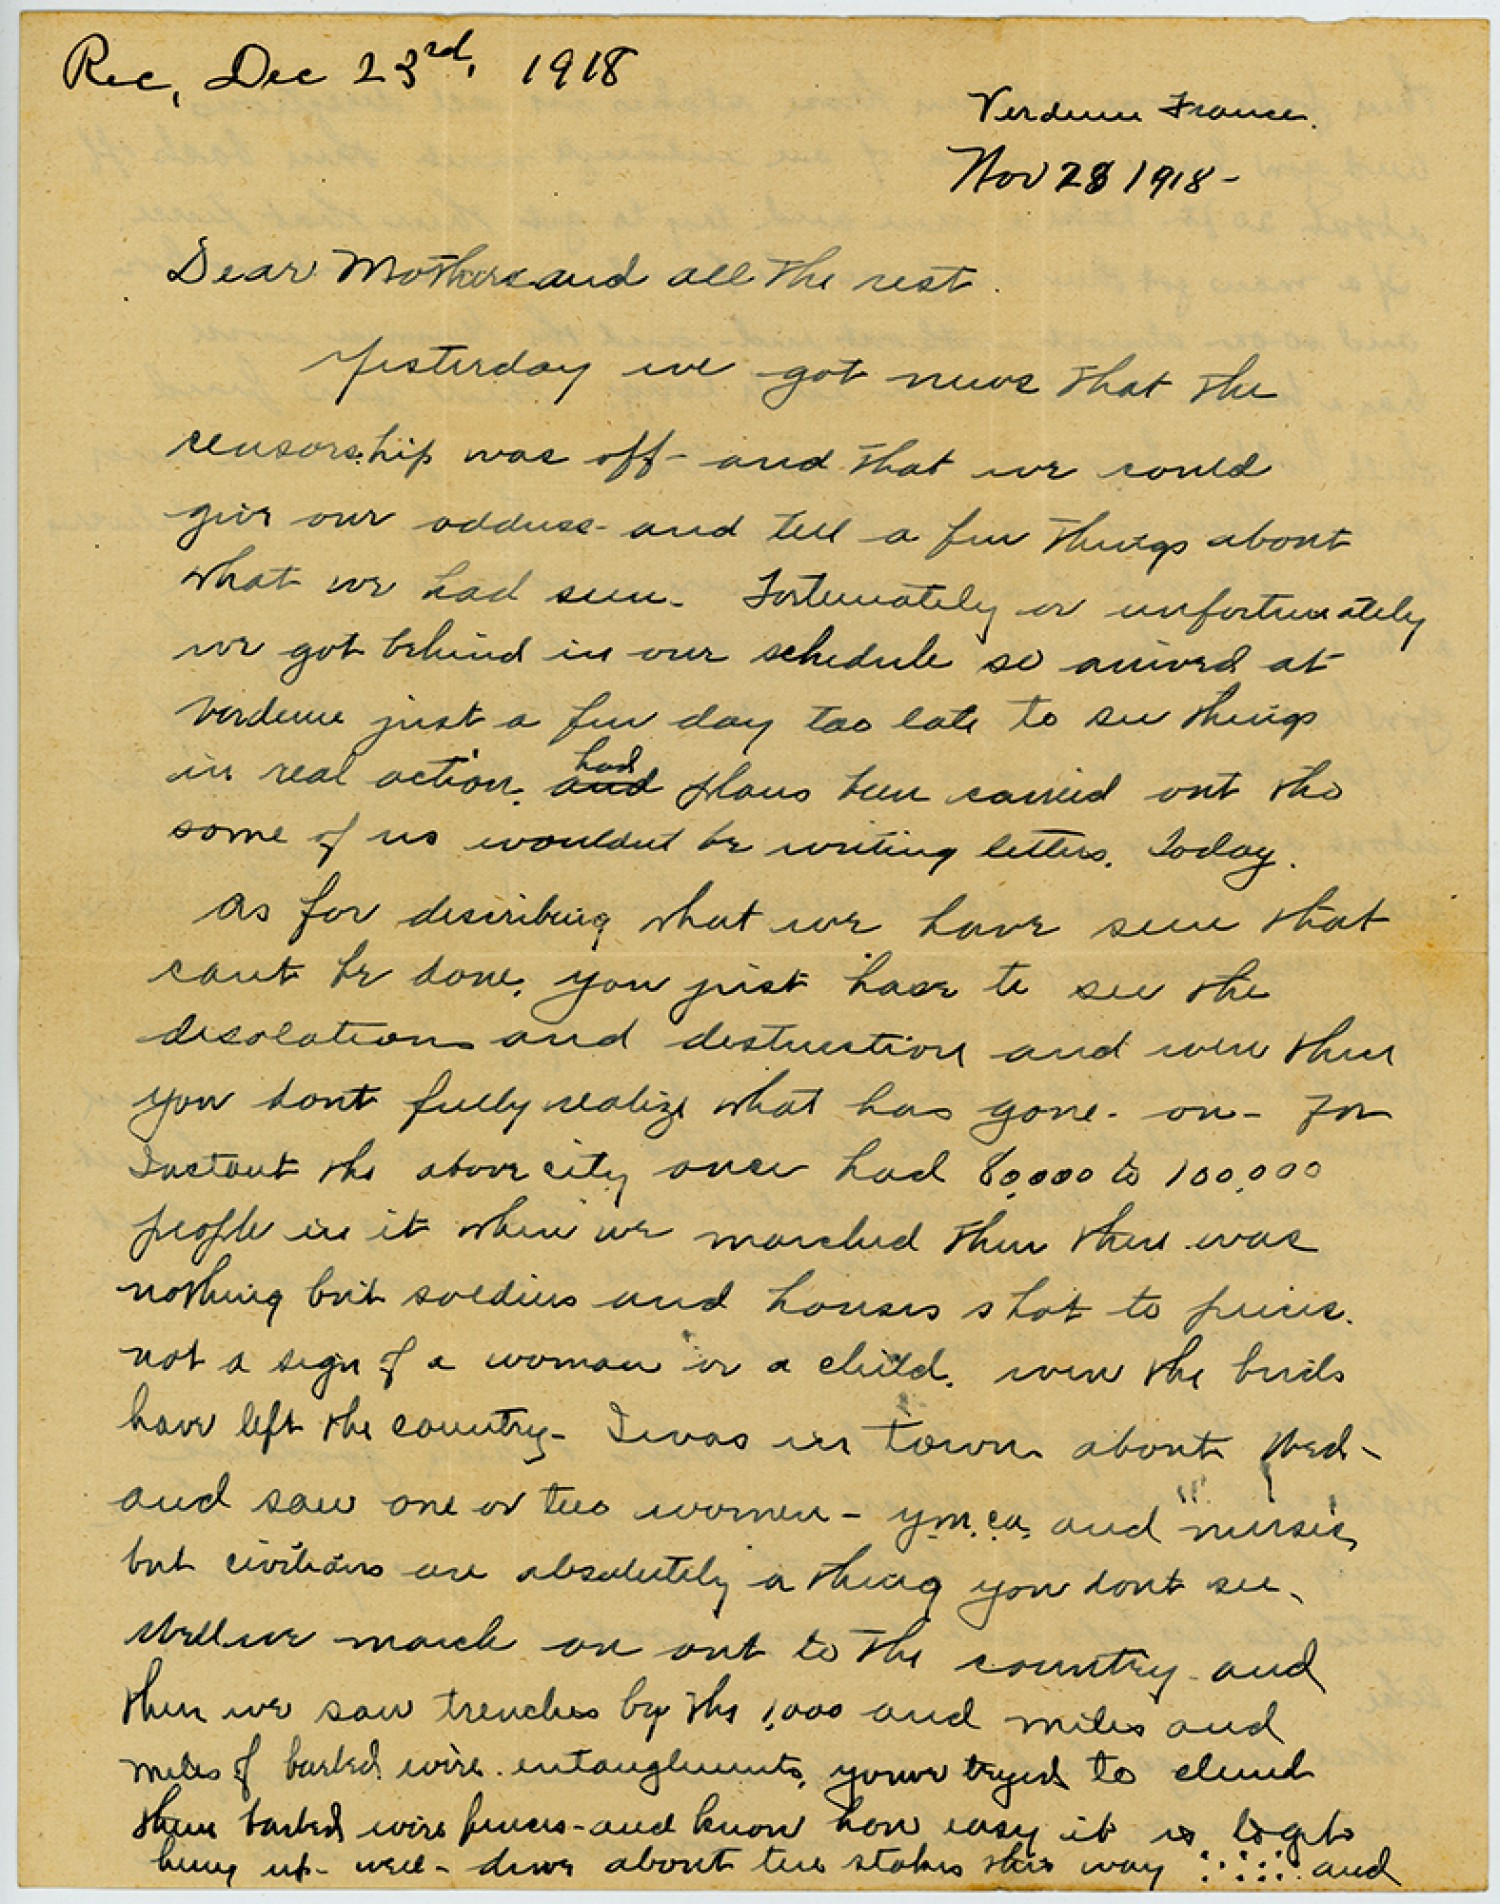 Rec, Dec 23rd, 1918
Verdun France.
Nov 28 1918-
Dear Mother and all the rest.
Yesterday we got news that the
censorship was off - and that we could
give our address - and tell a few things about
what we had seen - Fortunately or unfortunately
we got behind in our schedule so arrived at
Verdune just a few day too late to see things
in real action. had plans been carried out tho
some of us wouldnt be writing letters. Today.
As for describing what we have seen that
cant be done, you just have to see the
desolation and destruction and even then
you dont fully realize what has gone - on - For
Instant the above city once had 80,000 to 100,000
people in it when we marched thru there was
nothing but soldiers and houses shot to pieces.
not a sign of a woman or a child. even the birds
have left the country - I was in town about Wed -
and saw one or two women - y.m.c.a. and "nurses,
but civilians are absolutely a thing you dont see.
Well we march on out to the country - and
then we saw trenches by the 1,000 and miles and
miles of barbed wire entanglements, youve tryed to climb
thru barbed wire fences - and know how easy it is to get
hung up - well - drive about two stakes this way :·:·:·: and